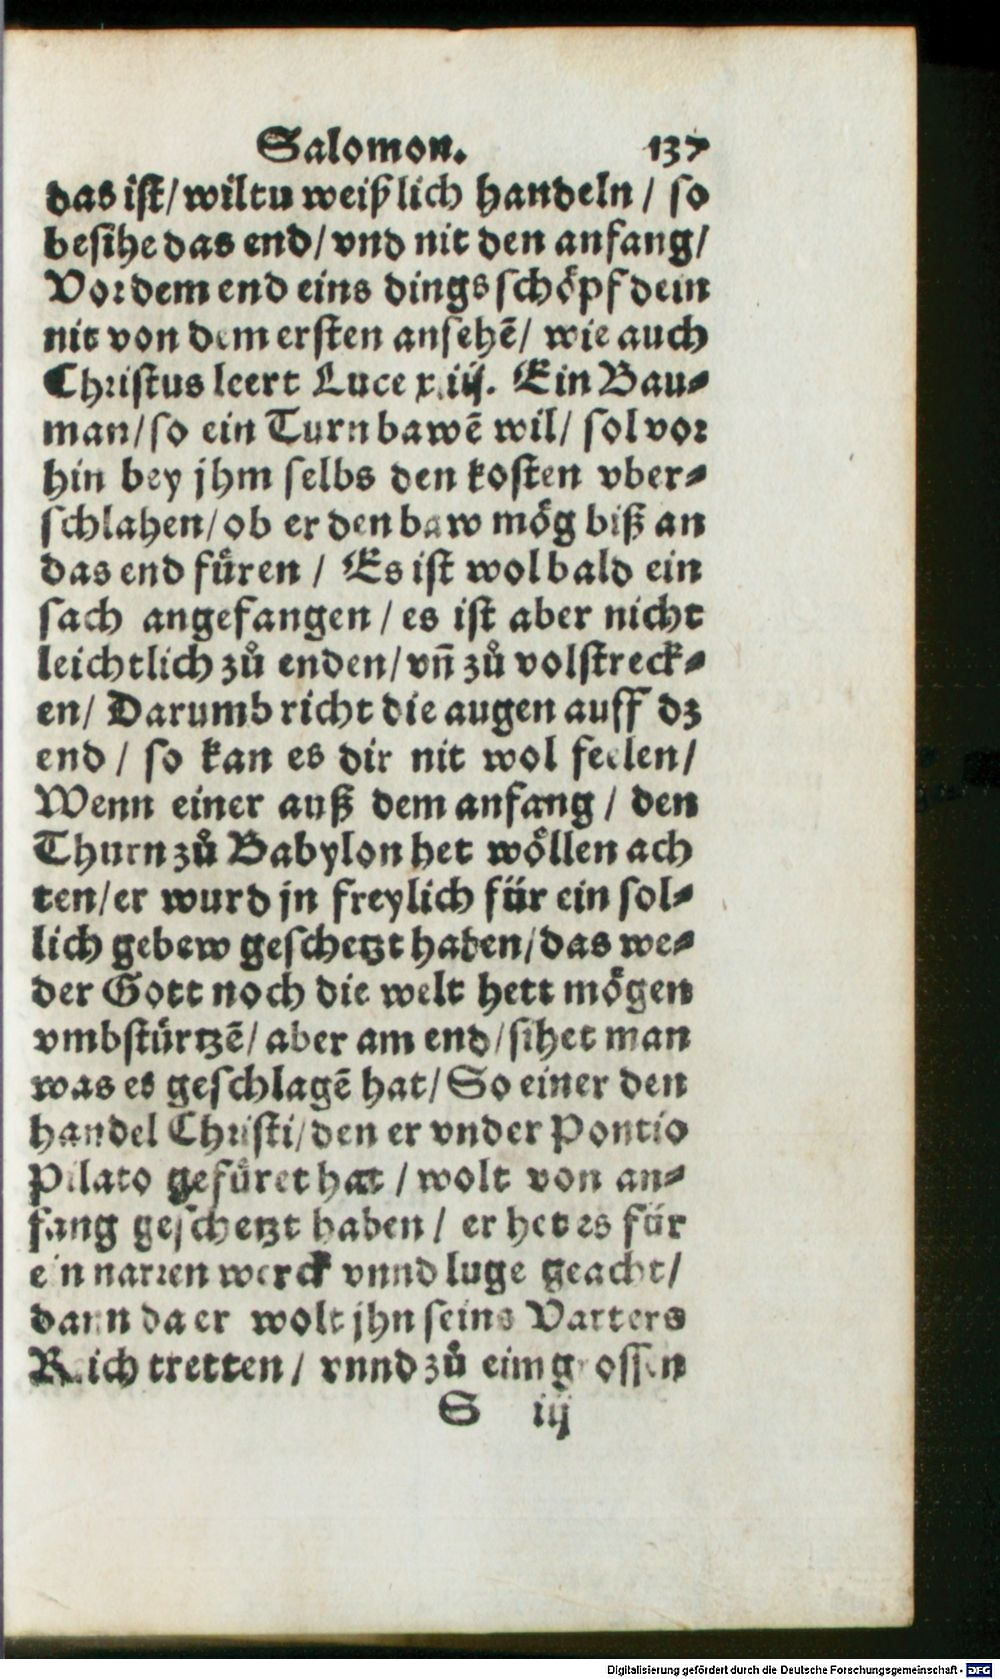 Salomon. 137
das ist/ wiltu weißlich handeln / so
besihe das end/ vnd nit den anfang/
Vor dem end eins dings schöpf dein
nit von dem ersten ansehē/ wie auch
Christus leert Luce xiiij. Ein Bau⸗
man/ so ein Turn bawē wil/ sol vor
hin bey jhm selbs den kosten vber⸗
schlahen/ ob er den baw mög biß an
das end fuͤren / Es ist wol bald ein
sach angefangen / es ist aber nicht
leichtlich zuͦ enden/ vñ zuͦ volstreck⸗
en/ Darumb richt die augen auff dz
end / so kan es dir nit wol feelen/
Wenn einer auß dem anfang / den
Thurn zuͦ Babylon het woͤllen ach
ten/ er wurd jn freylich für ein sol⸗
lich gebew geschetzt haben/ das we⸗
der Gott noch die welt hett moͤgen
vmbstürtzē/ aber am end/ sihet man
was es geschlagē hat/ So einer den
handel Christi/ den er vnder Pontio
Pilato gefuͤret hat / wolt von an⸗
fang geschetzt haben / er het es für
ein narren werck vnnd luge geacht/
dann da er wolt jhn seins Vatters
Reich tretten / vnnd zuͦ eim grossen
S iij
Digitalisierung gefördert durch die Deutsche Forschungsgemeinschaft - DFG